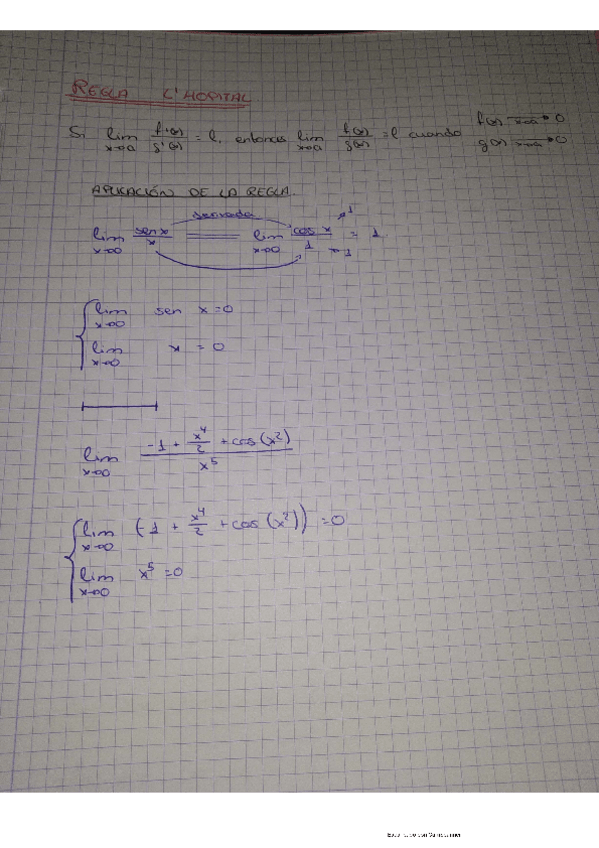 REGLA L'HOPITAL
Si lim x→a f'(x)/g'(x) = l, entonces lim x→a f(x)/g(x) = l cuando f(x) x→a→ 0
g(x) x→a→ 0
APLICACIÓN DE LA REGLA.
derivada
lim x→0 sen x/x = lim x→0 cos x/1 →1 →1 = 1
lim x→0 sen x = 0
lim x→0 x = 0
lim x→0 (-1 + x⁴/2 + cos(x²))/x⁵
lim x→0 (-1 + x⁴/2 + cos(x²)) = 0
lim x→0 x⁵ = 0